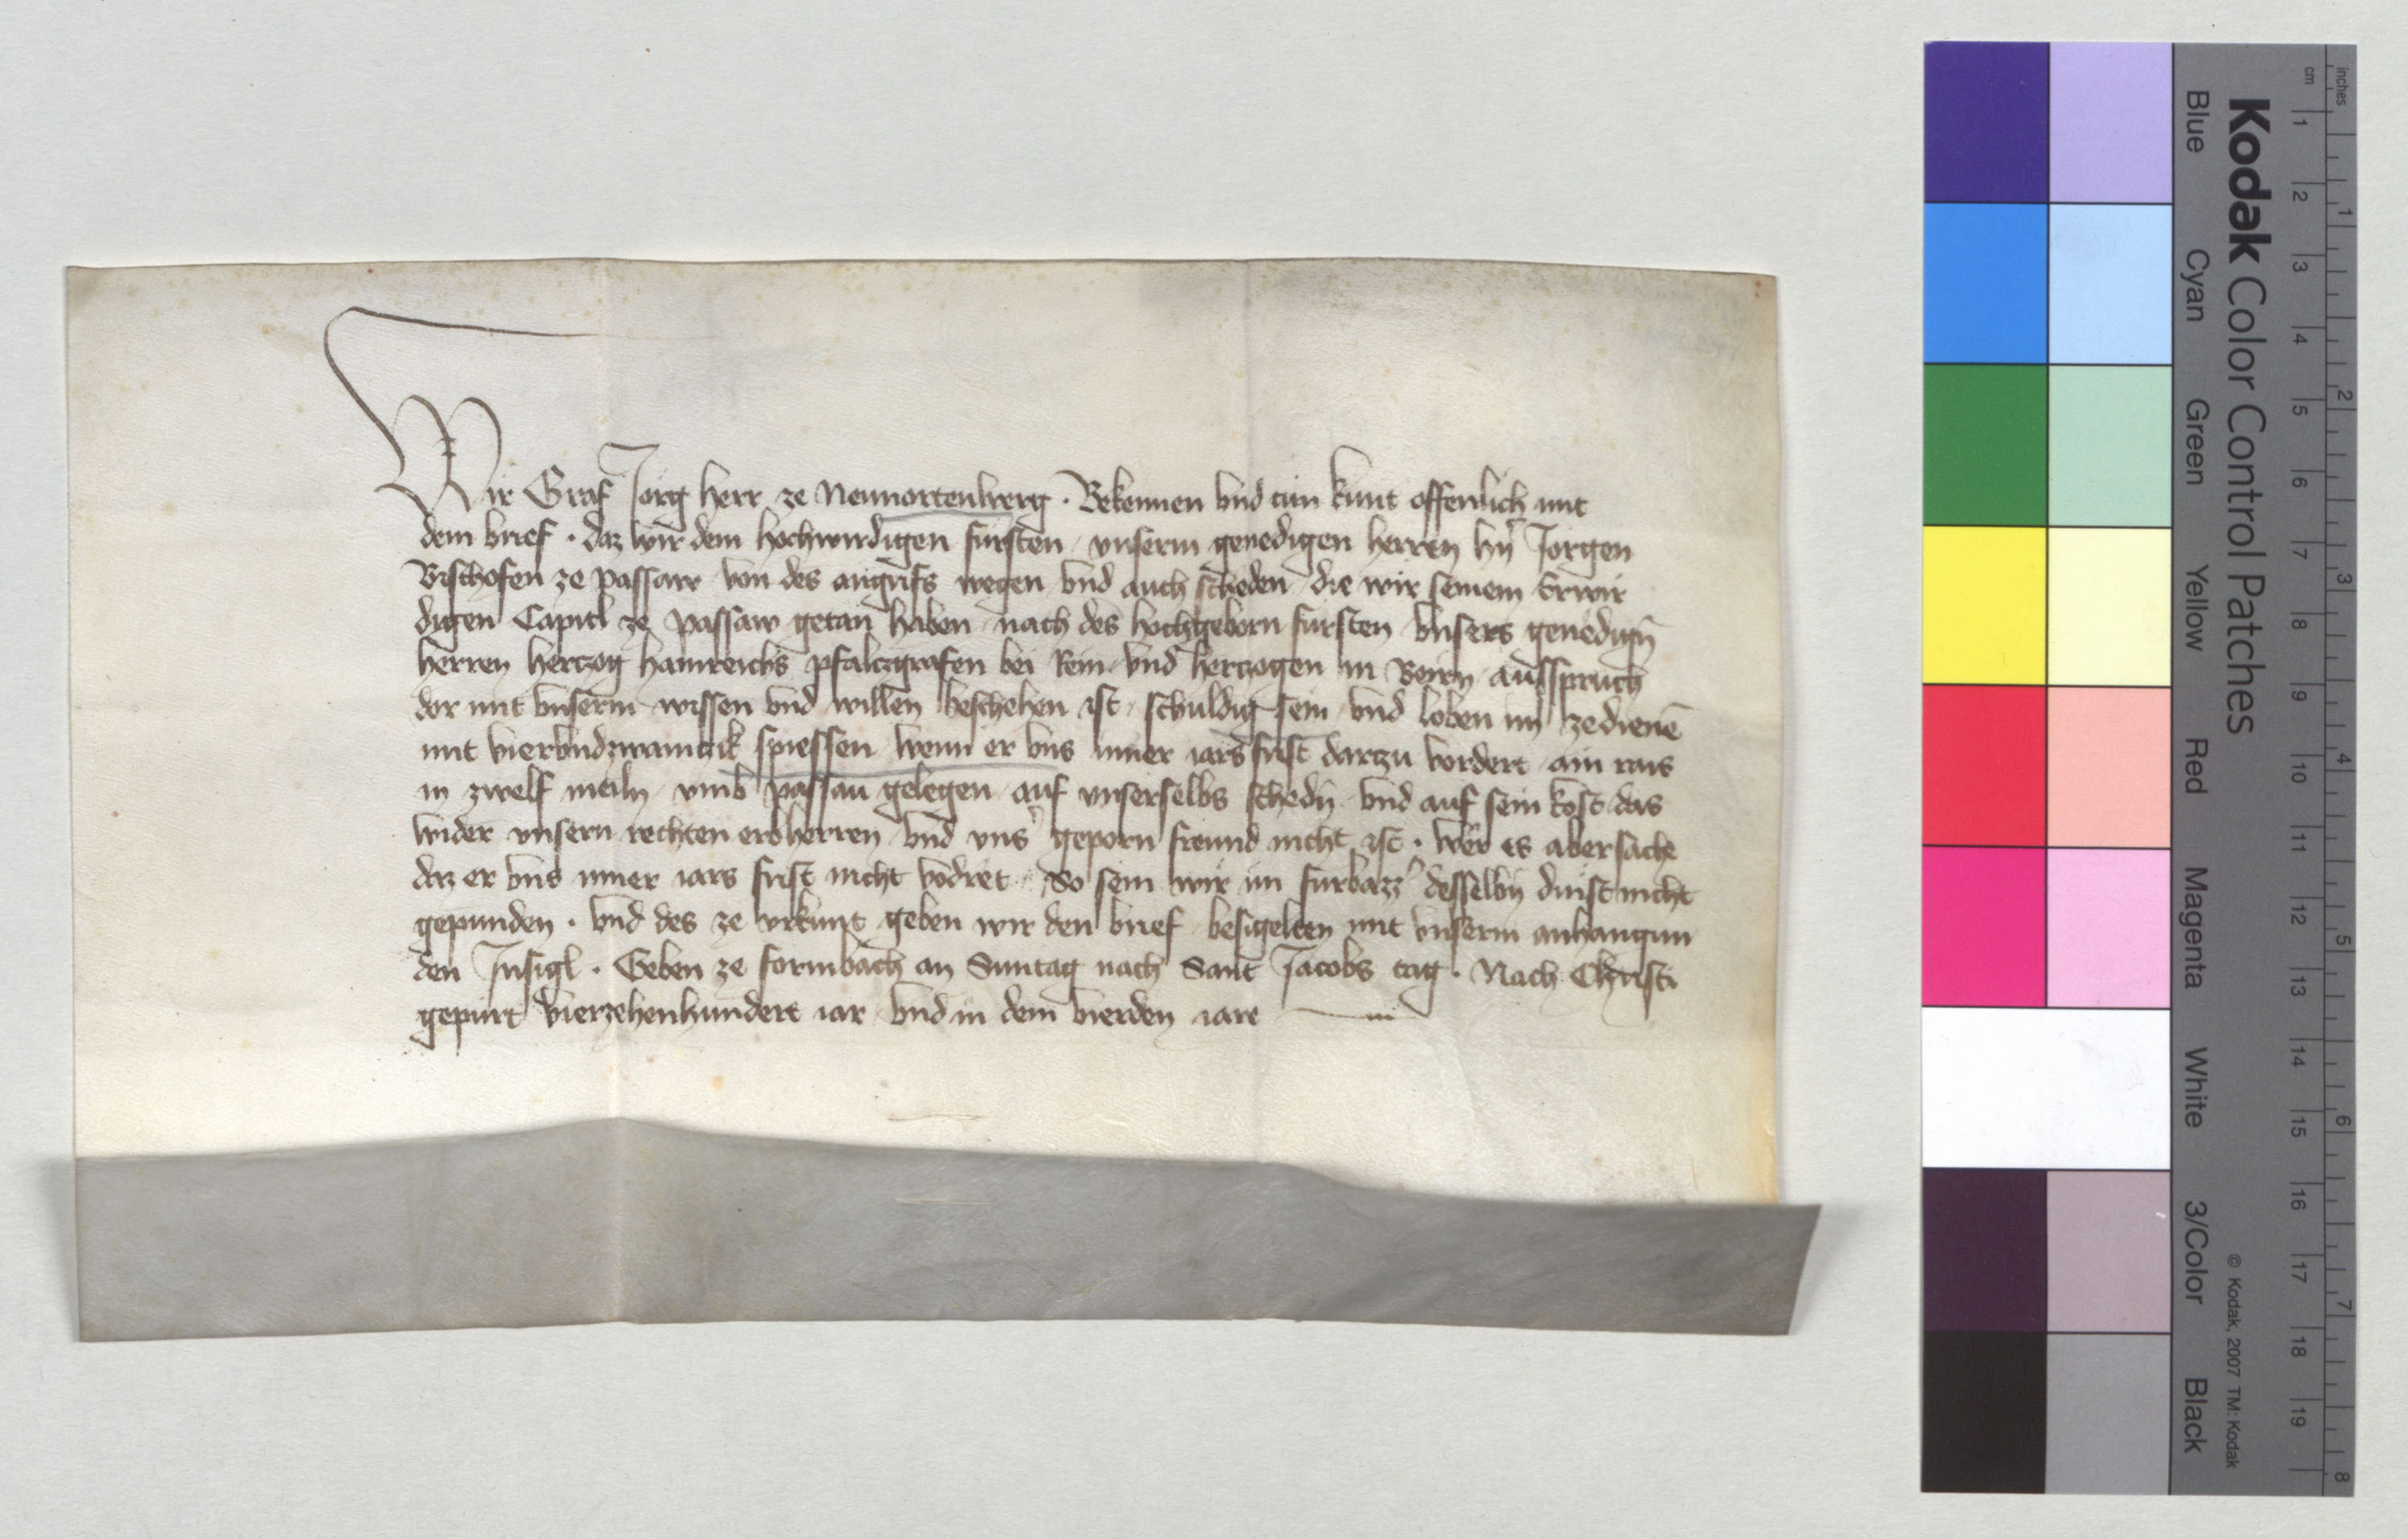 Wir Graf Jorg herr ze Neunortenberg · Bekennen vnd tun kunt offenlich mit
dem brief · daz wir dem hochwirdigen fursten vnserm genedigen herren hn̄ Jorgen
Bischofen ze passaw von des angrifs wegen vnd auch scheden die wir seinem Erwir
digen Capitl ze passaw getan haben nach des hochgeborn fursten vnsers genedign̄
herren hertzog hainreichs pfalczgrafen bei Rein vnd hertzogen in Beirn ausspruch
der mit vnserm wissen vnd willen beschehen ist schuldig sein vnd loben im zedienē
mit vierundzwainczik spiessen wenn er vns inner iars frist darzu vordert ain rais
in zwelf meiln vmb passau gelegen auf vnserselbs schedn̄ vnd auf sein kost das
wider vnsern rechten erbherren vnd vns̄ geporn freund nicht ist · wër es aber sache
daz er vns inner iars frist nicht vodret So sein wir im furbazz desselbn̄ dinst nicht
gepunden · vnd des ze vrkunt geben wir den brief besigelten mit vnserm anhangun
den Insigl · Geben ze formbach an Suntag nach Sant Jacobs tag · Nach Christi
gepurt vierzehenhundert iar vnd in dem vierden iare
Kodak Color Control Patches
Blue Cyan Green Yellow Red Magenta White 3/Color Black
© Kodak, 2007 TM: Kodak
inches 1 2 3 4 5 6 7 8
cm 1 2 3 4 5 6 7 8 9 10 11 12 13 14 15 16 17 18 19